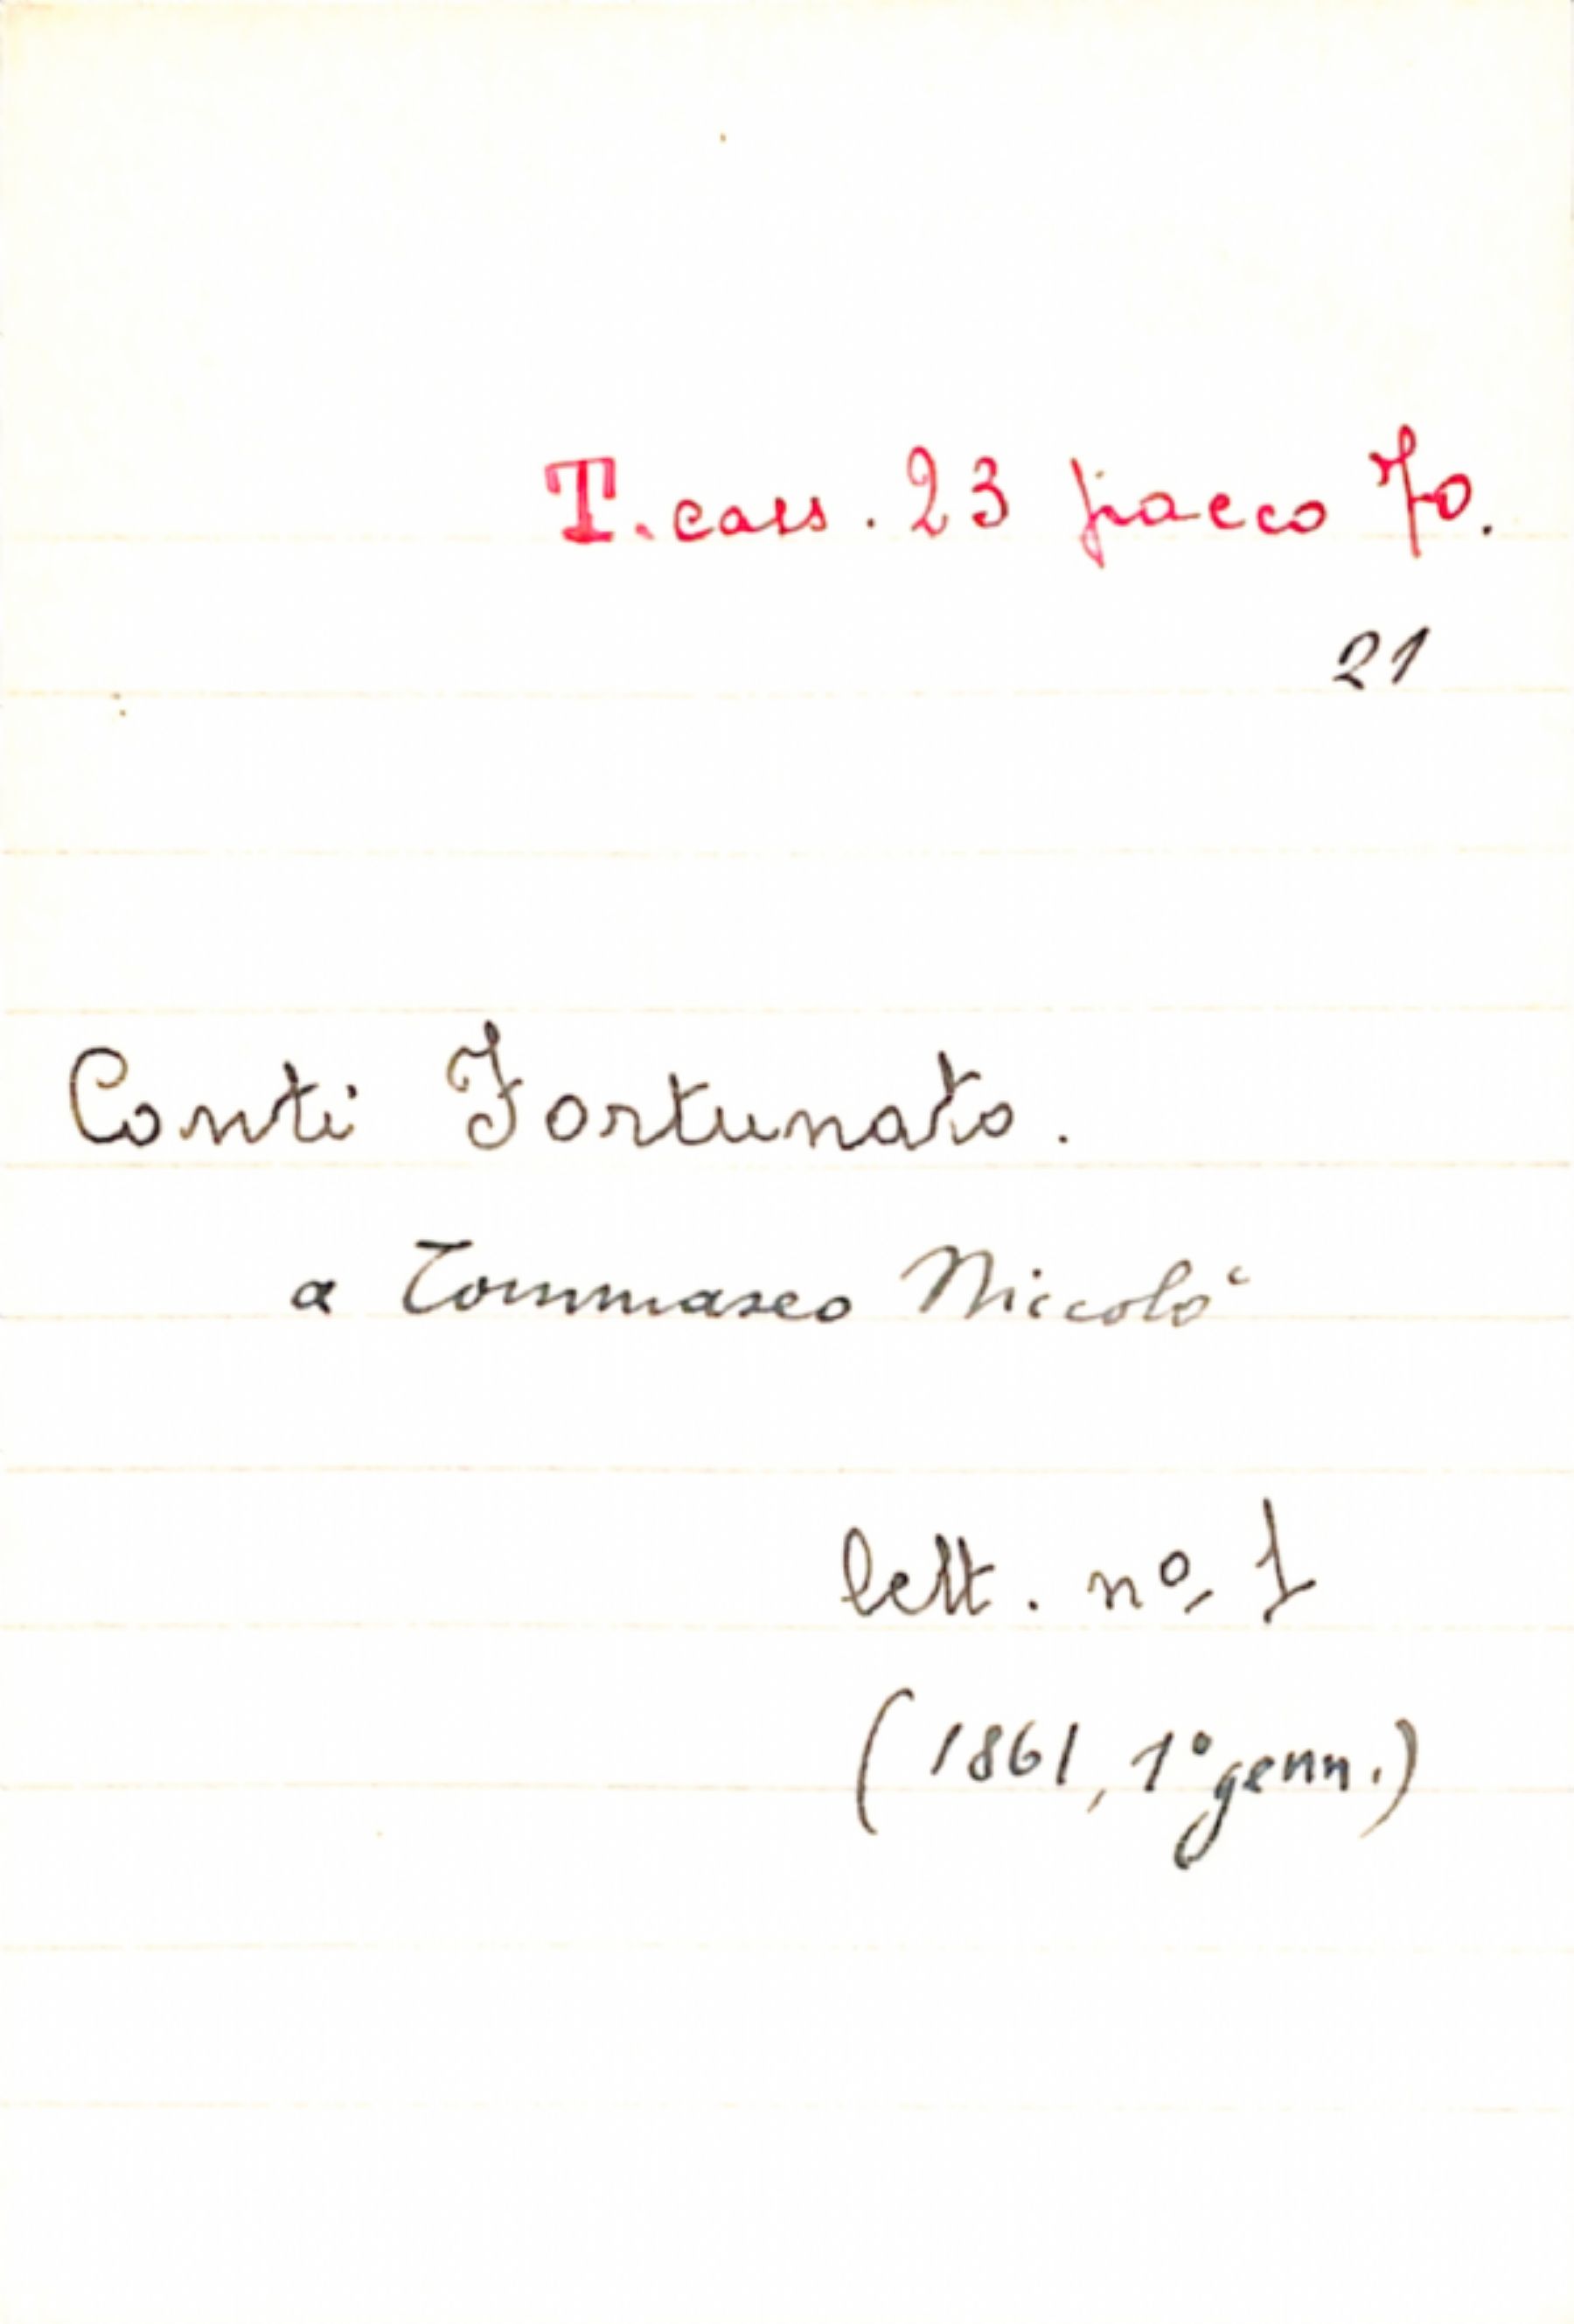 T. cass. 23 pacco 70.
21
Conti Fortunato.
a Tommaseo Niccolò
lett. nº. 1
(1861, 1° genn.)